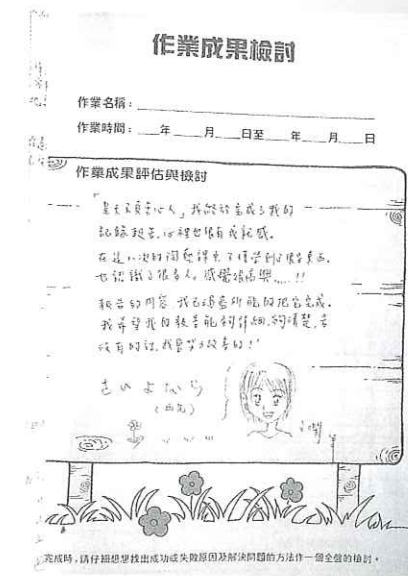 作業成果檢討
作業名稱：
作業時間：　年　月　日至　年　月　日
作業成果評估與檢討
「皇天不負苦心人」我終於完成了我的
記錄報告，心裡也很有成就感。
在這一次的陶藝課來了學到了很多東西，
也認識了很多人。感覺很高興...!!
報告的內容我已經盡所能的把它完成。
我希望我的報告能夠詳細、夠清楚，若
沒有的話，我會努力改善的！
さいよなら
完成時，請仔細想想找出成功或失敗原因及解決問題的方法作一個全盤的檢討。